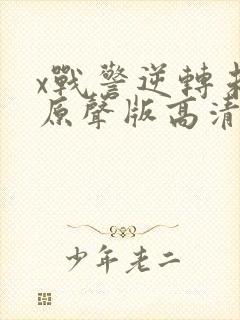 x戰警逆轉未
原聲版高清
少年老二